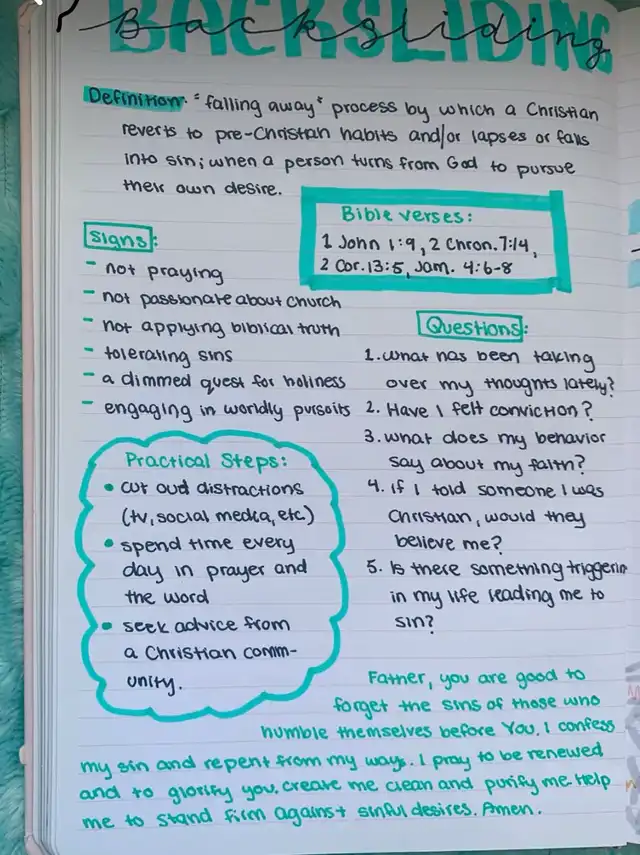 BACKSLIDING
Backsliding
Definition: "falling away" process by which a Christian
reverts to pre-Christian habits and/or lapses or falls
into sin; when a person turns from God to pursue
their own desire.
Bible verses:
1 John 1:9, 2 Chron. 7:14,
2 Cor. 13:5, Jam. 4:6-8
Signs:
- not praying
- not passionate about church
- not applying biblical truth
- tolerating sins
- a dimmed quest for holiness
- engaging in worldly pursuits
Questions:
1. What has been taking
over my thoughts lately?
2. Have I felt conviction?
3. what does my behavior
say about my faith?
4. if I told someone I was
Christian, would they
believe me?
5. Is there something triggerin
in my life leading me to
sin?
Practical Steps:
• cut out distractions
(tv, social media, etc.)
• spend time every
day in prayer and
the word
• seek advice from
a Christian comm-
unity.
Father, you are good to
forget the sins of those who
humble themselves before You. I confess
my sin and repent from my ways. I pray to be renewed
and to glorify you. create me clean and purify me. Help
me to stand firm against sinful desires. Amen.